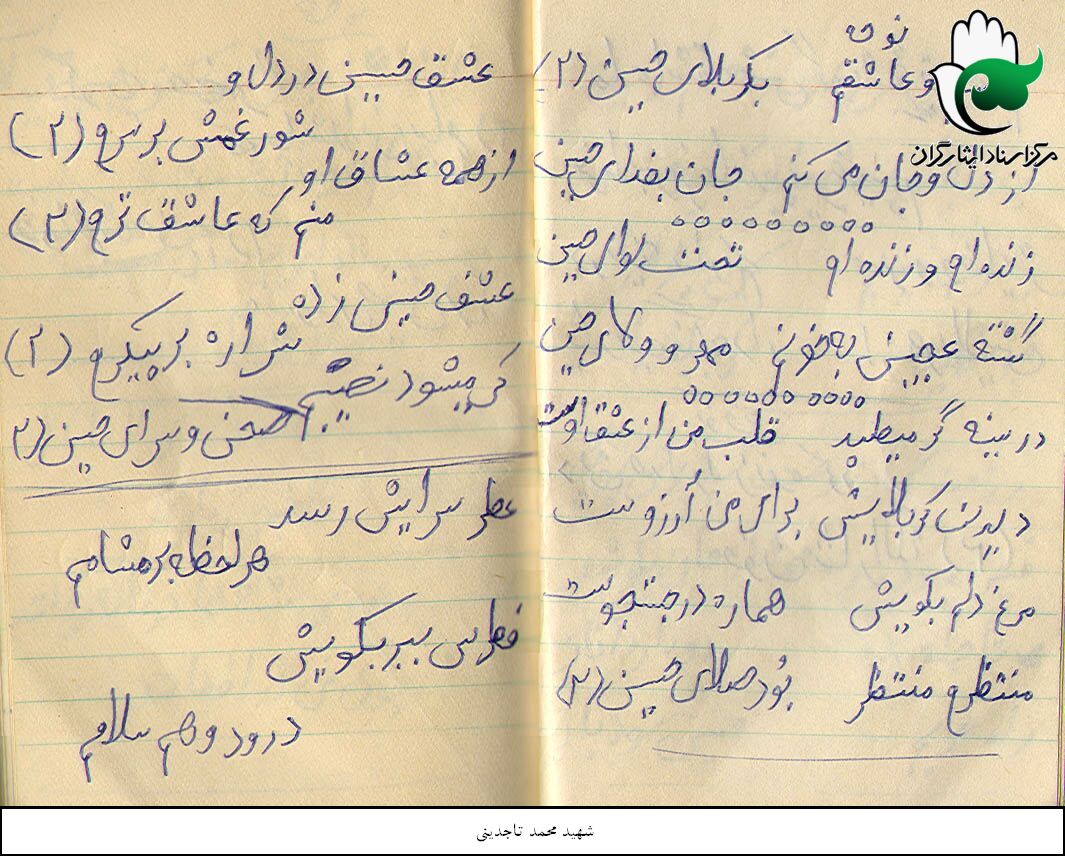 نوحه
و عاشقم بکربلای حسین (۲)
از دل و جان می کنم جان بفدای حسین
زنده ام و زنده ام تحت لوای حسین
گشته عجین به خونم مهر و وفای حسین
در سینه گر میطپد قلب من از عشق اوست
دیدن کربلایش برای من آرزوست
مرغ دلم بکویش هماره در جستجوست
منتظرم منتظر بُود صلای حسین (۲)
عشق حسینی در دل و
شور غمش بر سرم (۲)
از همه عشاق او
منم که عاشق ترم (۲)
عشق حسینی زده
شراره بر پیکرم (۲)
کی میشود نصیبم
صحن و سرای حسین (۲
عطر سرایش رسد
هر لحظه بر مشامم
فطرس ببر بکویش
درود و هم سلامم
مرکز اسناد ایثارگران
شهید محمد تاجدینی